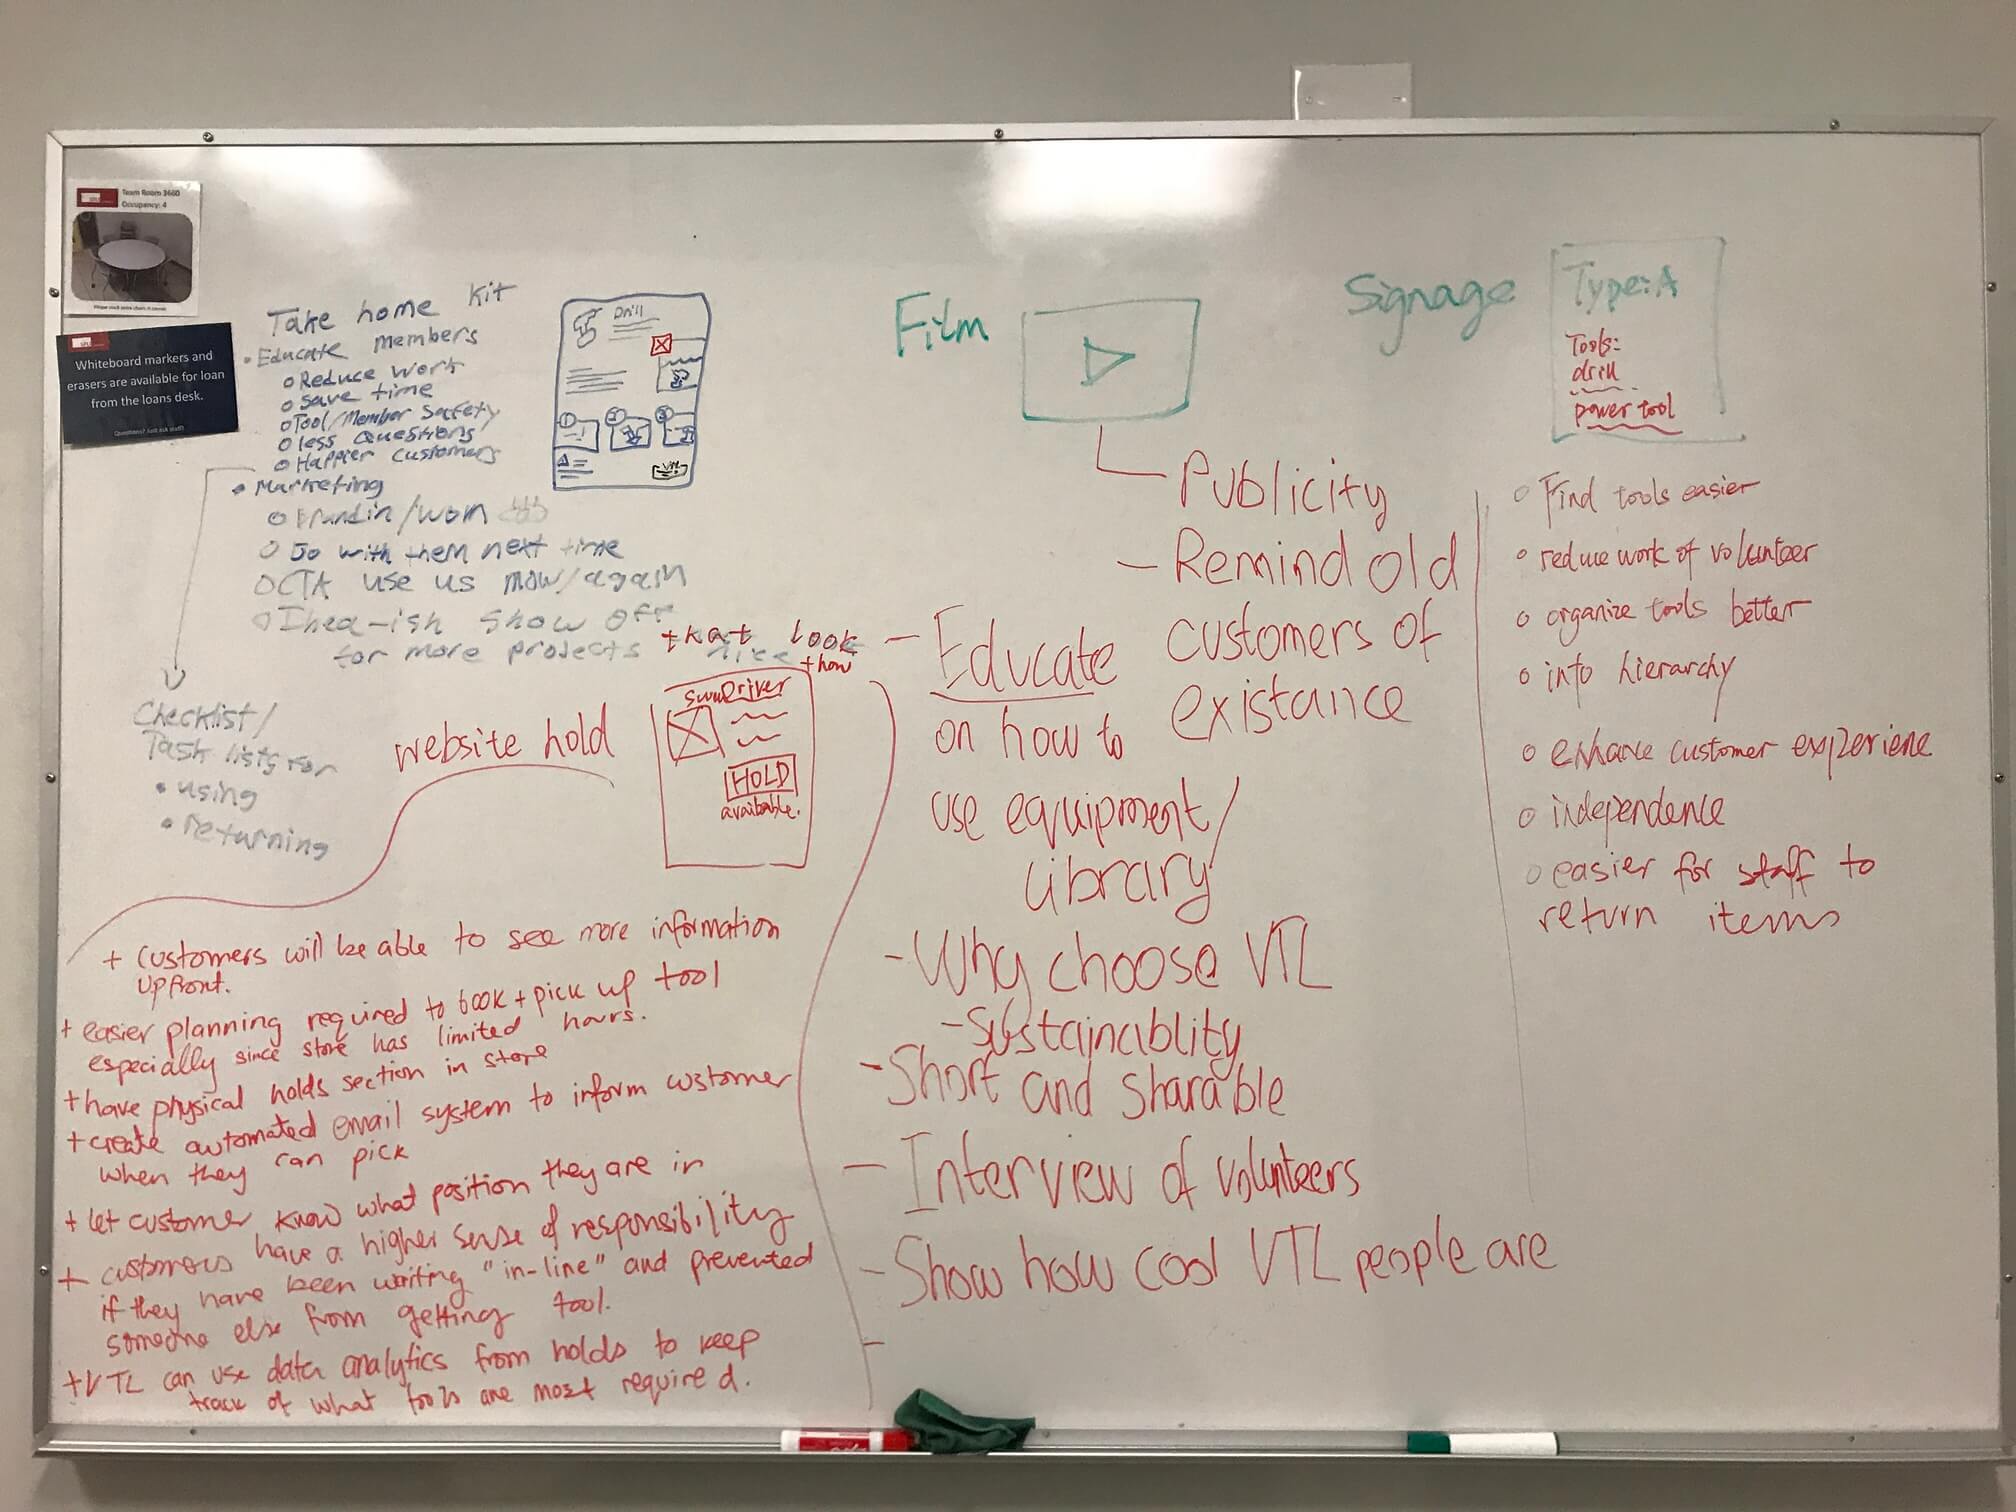 Team Room 3660
Occupancy: 4
Whiteboard markers and
erasers are available for loan
from the loans desk.
Questions? Just ask staff!
Take home Kit
• Educate members
o Reduce work
o save time
o Tool/Member Safety
o less Questions
o Happier customers
• Marketing
o Go with them next time
o CTA use us now/again
o Ikea-ish show off
for more projects that look
nice + how
Checklist/
Task lists for
• using
• returning
Drill
1
2
3
website hold
HOLD
available.
+ customers will be able to see more information
upfront.
+ easier planning required to book + pick up tool
especially since store has limited hours.
+ have physical holds section in store
+ create automated email system to inform customer
when they can pick
+ let customer know what position they are in
+ customers have a higher sense of responsibility
if they have been waiting "in-line" and prevented
someone else from getting tool.
+ VTL can use data analytics from holds to keep
track of what tools are most required.
Film
- Publicity
- Remind old
customers of
existance
- Educate
on how to
use equipment/
library
- Why choose VTL
- Sustainablity
- Short and sharable
- Interview of volunteers
- Show how cool VTL people are
-
Signage
Type: A
Tools:
drill
power tool
o Find tools easier
o reduce work of volunteer
o organize tools better
o info hierarchy
o enhance customer experiene
o independence
o easier for staff to
return items